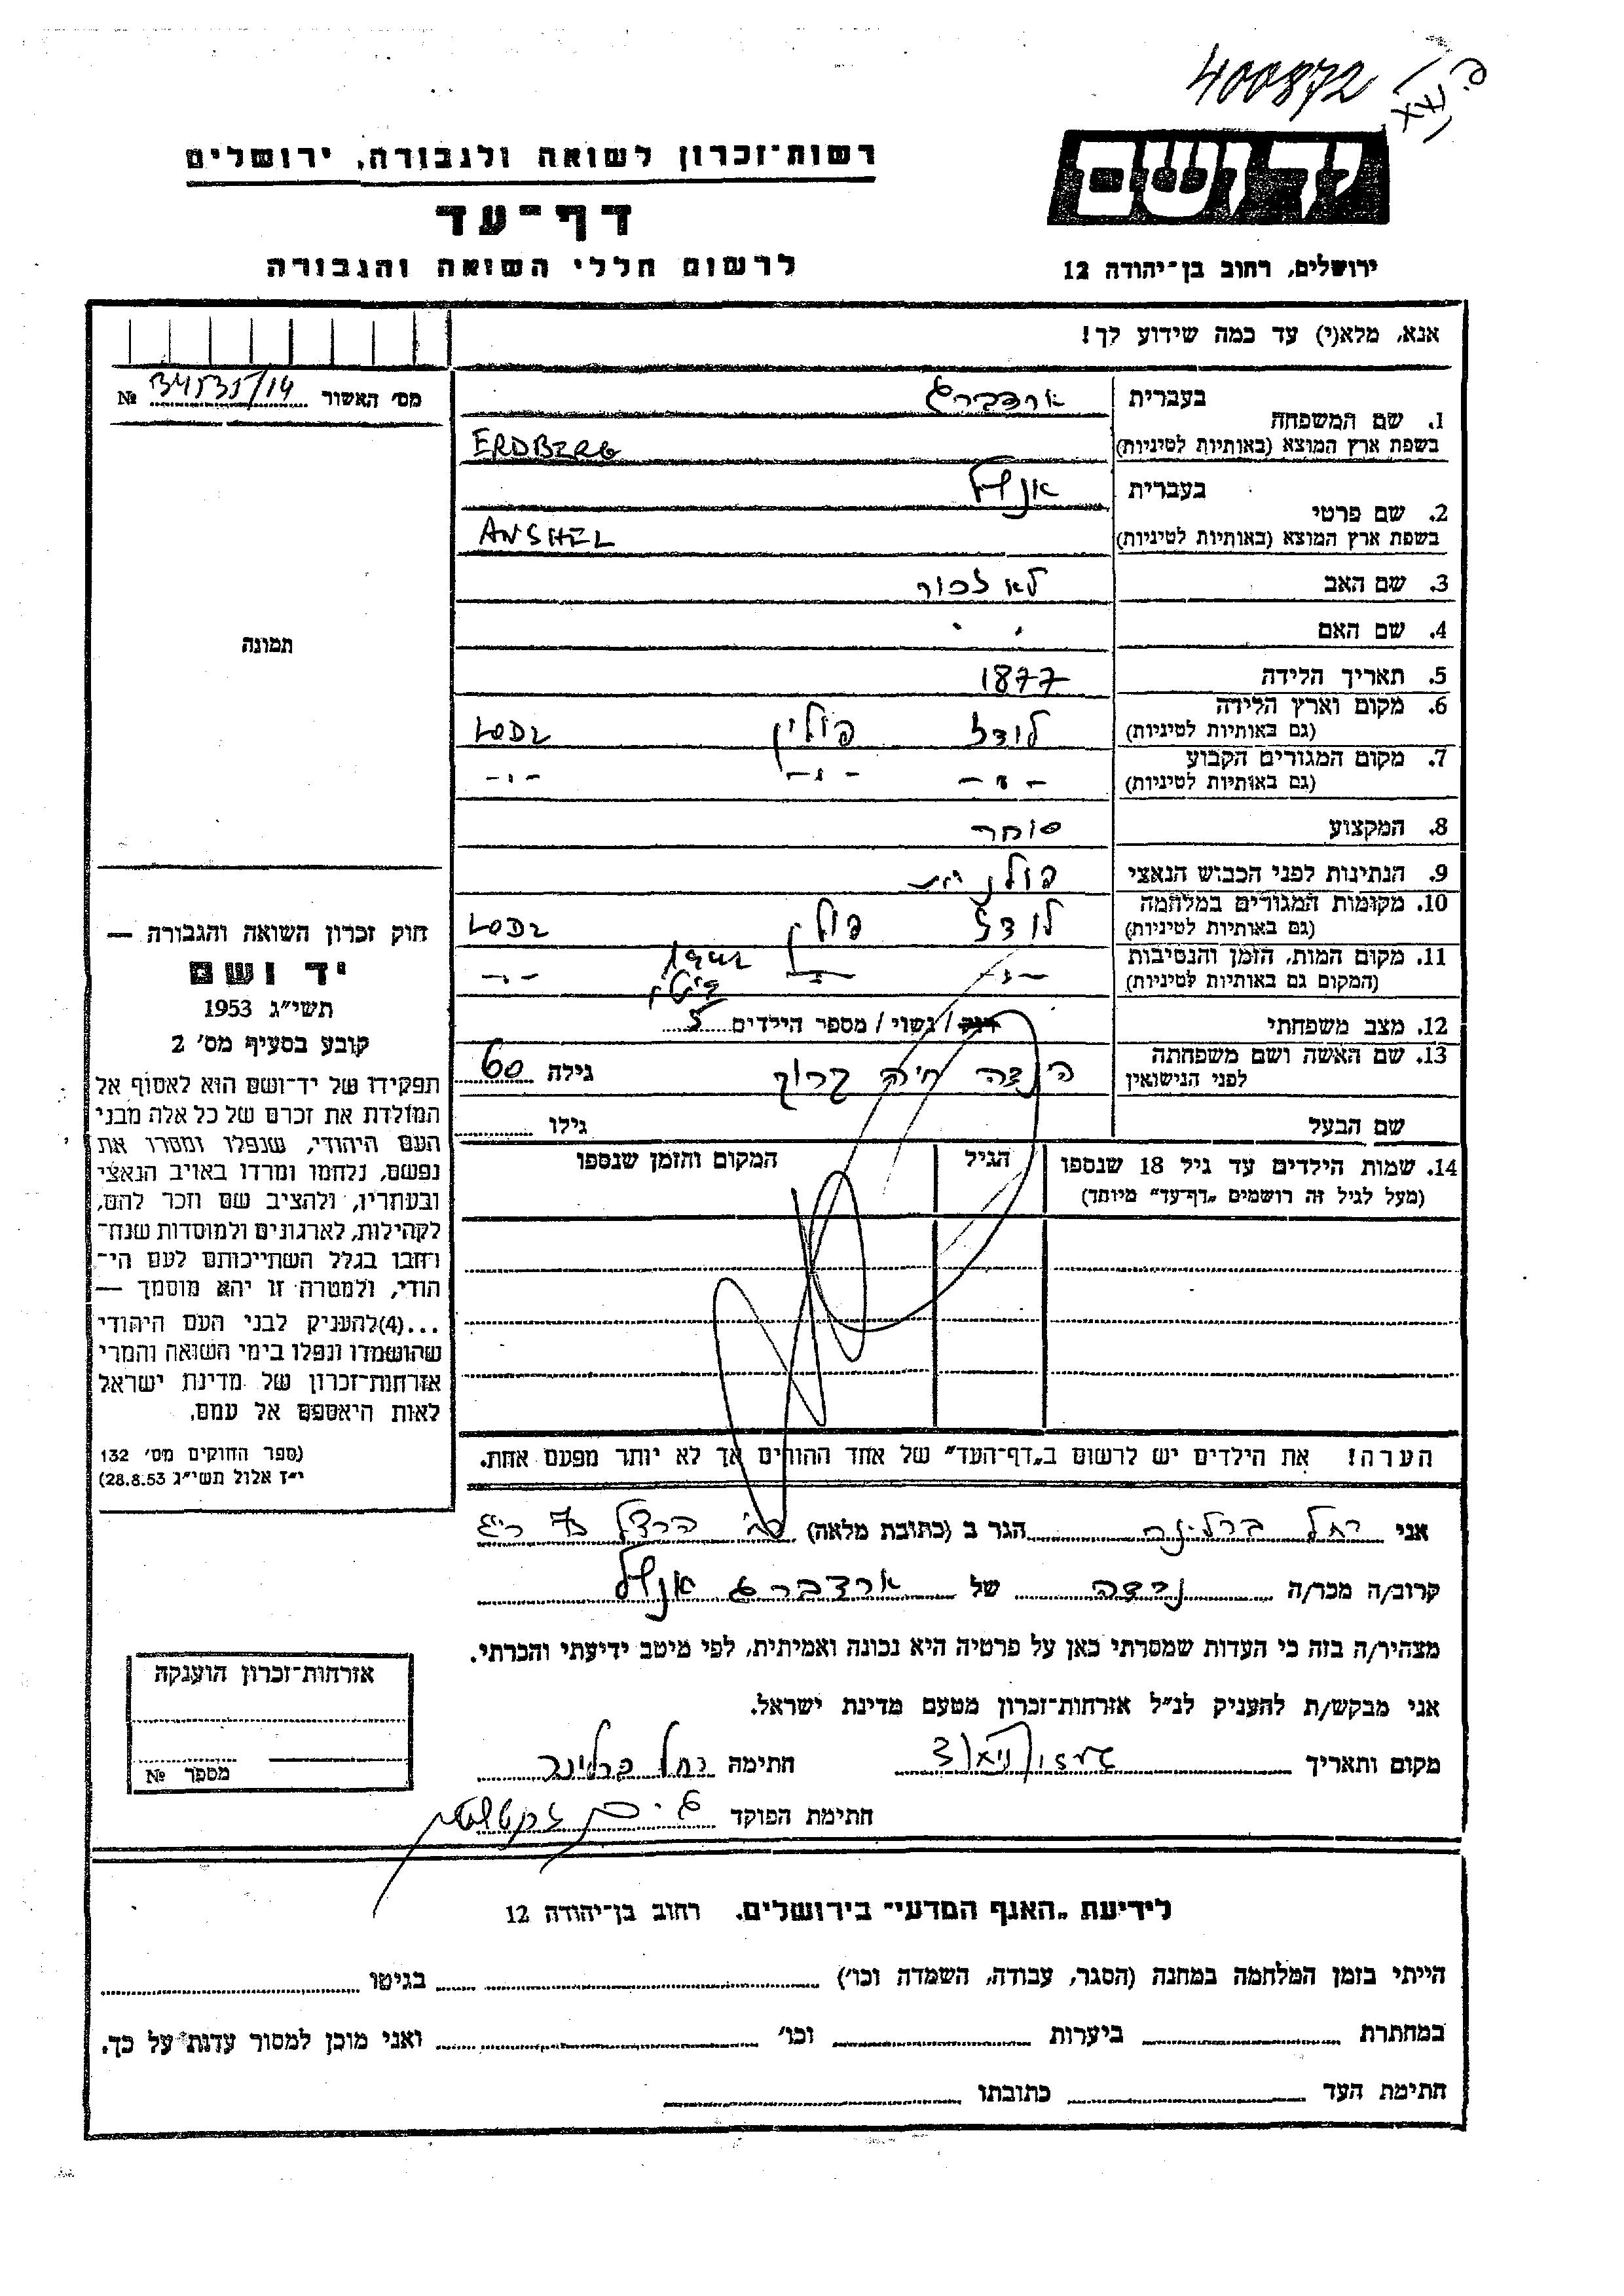 400872
יד ושם
רשות־זכרון לשואה ולגבורה, ירושלים
דף־עד
לרשום חללי השואה והגבורה
ירושלים, רחוב בן־יהודה 12
אנא, מלא(י) עד כמה שידוע לך!
מס׳ האשור 34535/14 №
1. שם המשפחה בעברית ארדברג
בשפת ארץ המוצא (באותיות לטיניות) ERDBERG
2. שם פרטי בעברית אנשל
בשפת ארץ המוצא (באותיות לטיניות) ANSHEL
3. שם האב לא זכור
4. שם האם " "
5. תאריך הלידה 1877
6. מקום וארץ הלידה לודז פולין LODZ
(גם באותיות לטיניות)
7. מקום המגורים הקבוע -"- -"- -"-
(גם באותיות לטיניות)
8. המקצוע סוחר
9. הנתינות לפני הכבוש הנאצי פולנית
10. מקומות המגורים במלחמה לודז פולין LODZ
(גם באותיות לטיניות)
11. מקום המות, הזמן והנסיבות -"- -"- -"-
(המקום גם באותיות לטיניות)
12. מצב משפחתי רווק / נשוי / מספר הילדים 5
13. שם האשה ושם משפחתה הינדה חיה קרוק גילה 60
לפני הנישואין
שם הבעל גילו
14. שמות הילדים עד גיל 18 שנספו הגיל המקום והזמן שנספו
(מעל לגיל זה רושמים „דף־עד” מיוחד)
הערה! את הילדים יש לרשום ב„דף־העד” של אחד ההורים אך לא יותר מפעם אחת.
תמונה
חוק זכרון השואה והגבורה —
יד ושם
תשי״ג 1953
קובע בסעיף מס׳ 2
תפקידו של יד־ושם הוא לאסוף אל
המולדת את זכרם של כל אלה מבני
העם היהודי, שנפלו ומסרו את
נפשם, נלחמו ומרדו באויב הנאצי
ובעוזריו, ולהציב שם וזכר להם,
לקהילות, לארגונים ולמוסדות שנח־
רחבו בגלל השתייכותם לעם הי־
הודי, ולמטרה זו יהא מוסמך —
...(4)להעניק לבני העם היהודי
שהושמדו ונפלו בימי השואה והמרי
אזרחות־זכרון של מדינת ישראל
לאות היאספם אל עמם.
(ספר החוקים מס׳ 132
י״ז אלול תשי״ג 28.8.53)
אני רחל ברלינר הגר ב (כתובת מלאה) רח׳ הרצל
קרוב/ה מכר/ה נכדה של ארדברג אנשל
מצהיר/ה בזה כי העדות שמסרתי כאן על פרטיה היא נכונה ואמיתית, לפי מיטב ידיעתי והכרתי.
אני מבקש/ת להעניק לנ״ל אזרחות־זכרון מטעם מדינת ישראל.
מקום ותאריך חתימה רחל ברלינר
חתימת הפוקד
אזרחות־זכרון הוענקה
מספר №
לידיעת „האגף המדעי” בירושלים. רחוב בן־יהודה 12
הייתי בזמן המלחמה במחנה (הסגר, עבודה, השמדה וכו׳) בגיטו
במחתרת ביערות וכו׳ ואני מוכן למסור עדות על כך.
חתימת העד כתובתו